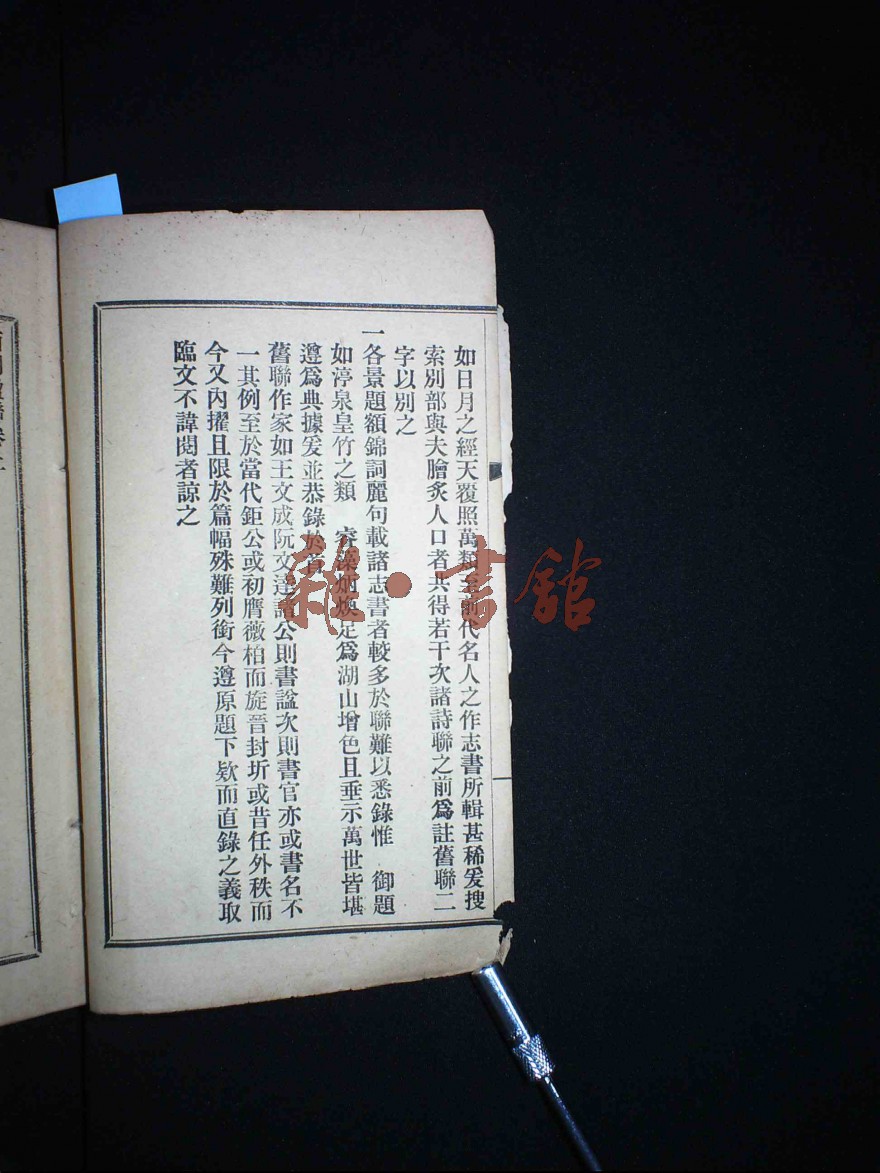 如日月之經天覆照萬類至前代名人之作志書所輯甚稀爰搜
索別部與夫膾炙人口者共得若干次諸詩聯之前爲註舊聯二
字以別之
一各景題額錦詞麗句載諸志書者較多於聯難以悉錄惟　御題
如渟泉皇竹之類　睿藻炳煥足爲湖山增色且垂示萬世皆堪
遵爲典據爰並恭錄於首
舊聯作家如王文成阮文達諸公則書諡次則書官亦或書名不
一其例至於當代鉅公或初膺薇柏而旋晉封圻或昔任外秩而
今又內擢且限於篇幅殊難列銜今遵原題下欵而直錄之義取
臨文不諱閱者諒之
雜·書館